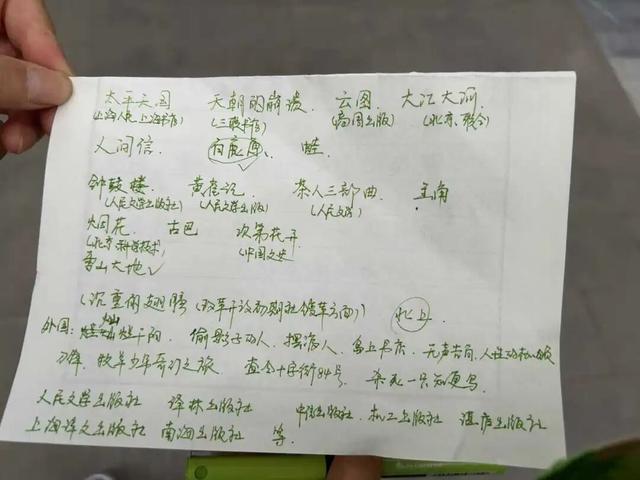 太平天国 天朝的崩溃. 云图. 大江大河.
(上海人民 上海书店) (三联书店) (出版) (北京.联合)
人间信. 白鹿原. 蛙.
钟鼓楼. 黄雀记. 茶人三部曲. 主角
(人民文学出版社) (人民文学出版) (人民文学)
烟花. 古巴 次第花开
(北京科学技术) (中国文史)
香山大地
(沉重的翅膀(改革开放初期社会变革方面)) 北上.
外国: 山 十间. 偷影子的人. 摆渡人. 岛上书店. 无声告白. 人性的枷锁
刀锋. 牧羊少年奇幻之旅. 查令十字街84号. 杀死一只知更鸟.
人民文学出版社 译林出版社 中信出版社. 机工出版社 湛庐出版社
上海译文出版社 南海出版社 等.